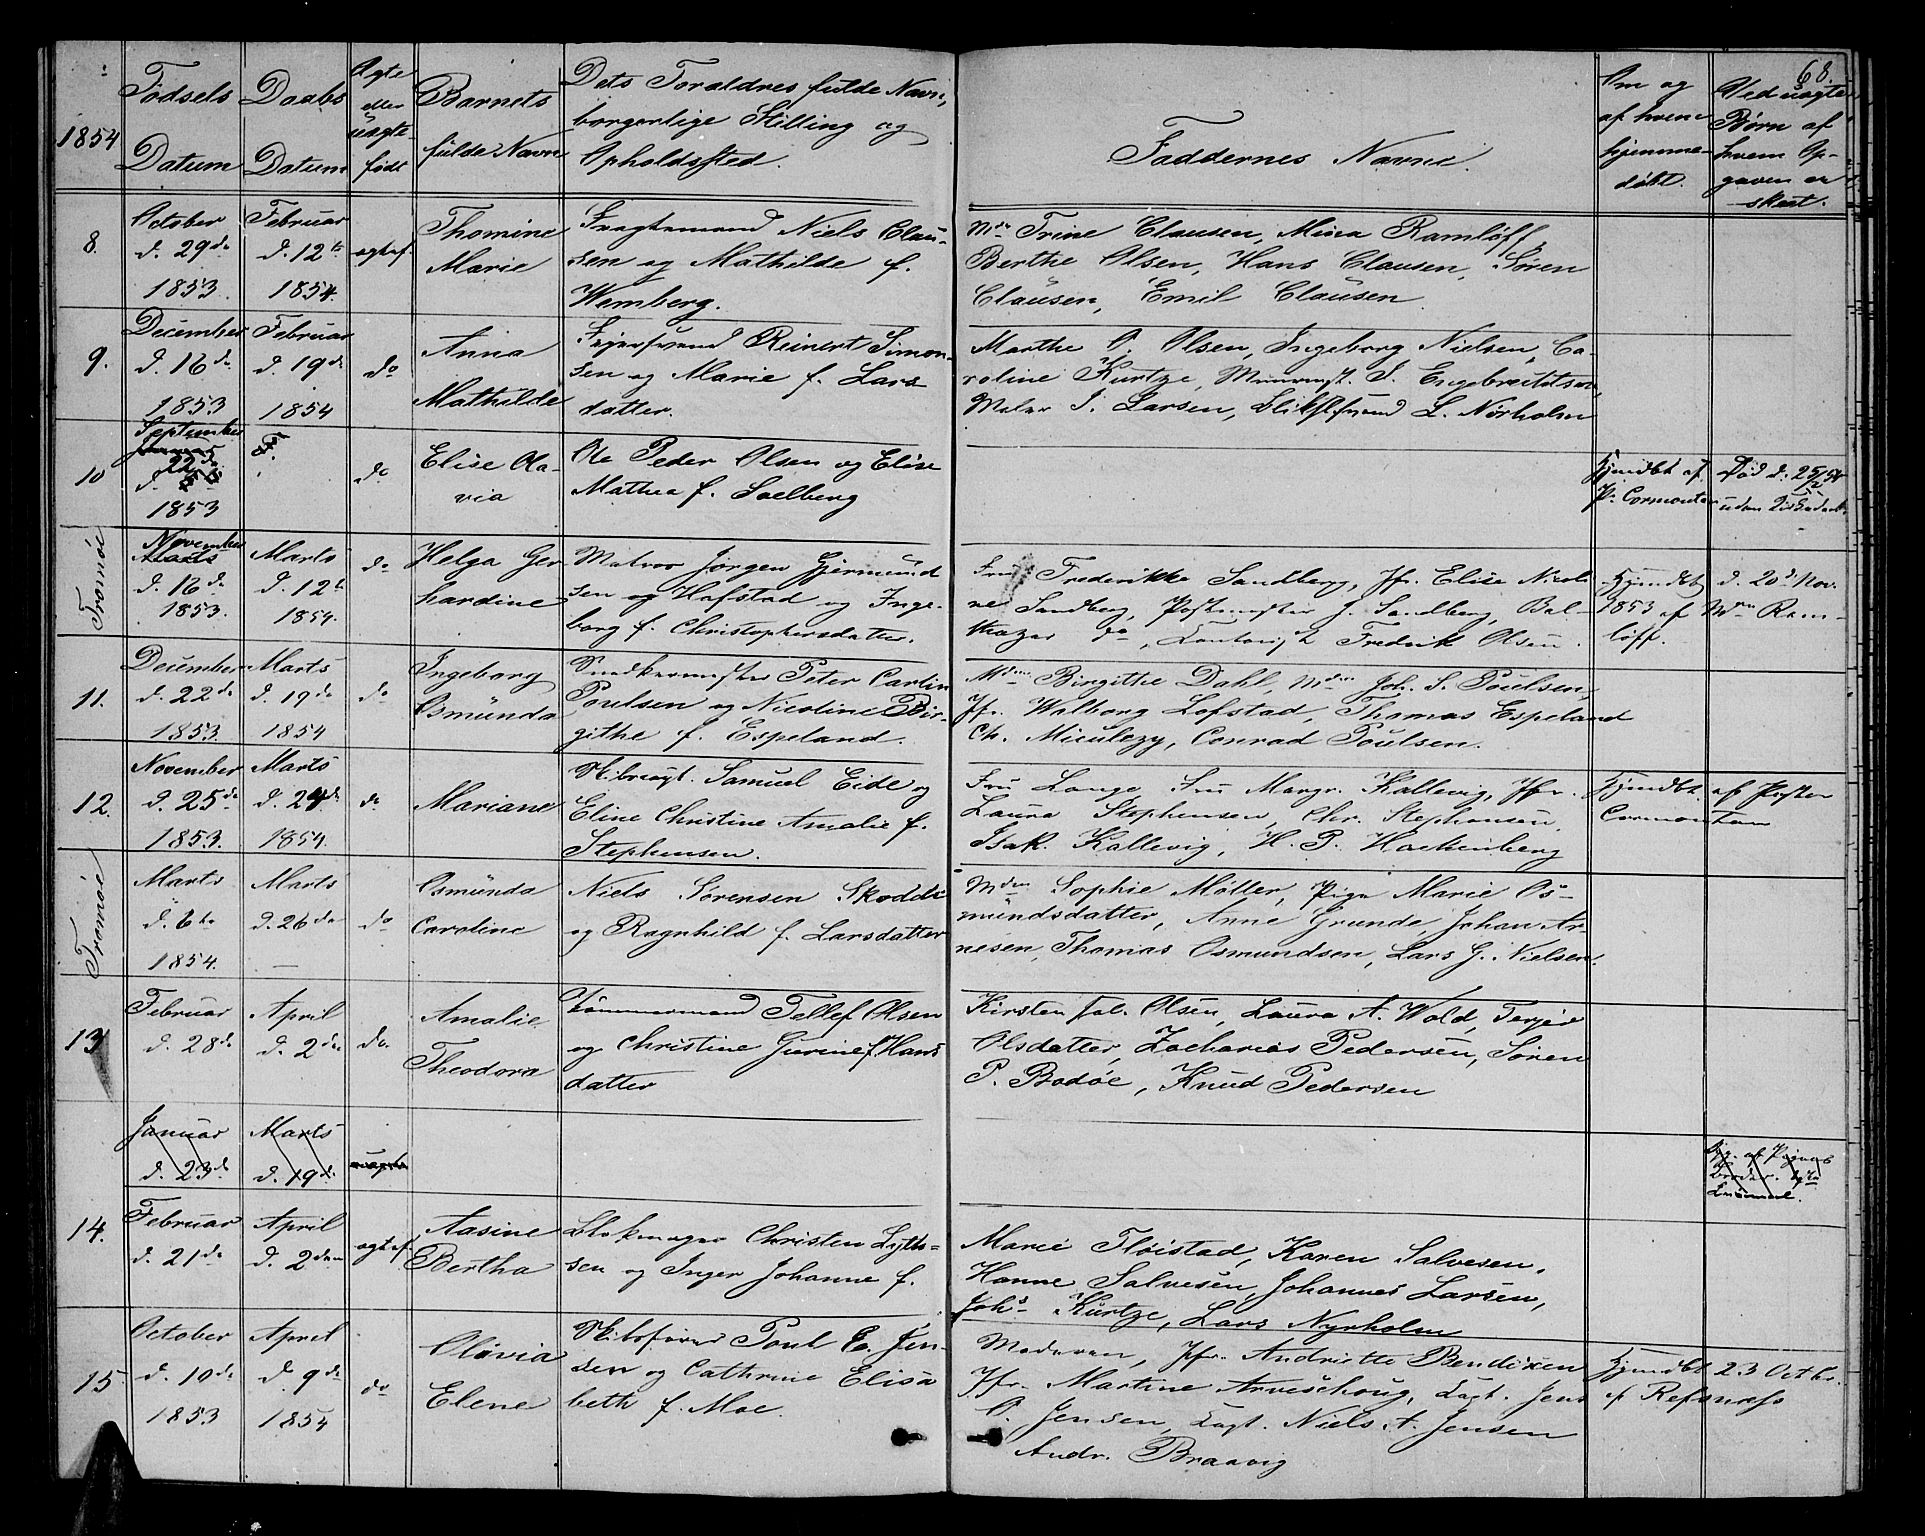 68.
1854
Fødsels Datum
Daabs Datum
Ægte eller uægte født
Barnets fulde Navn
Dets Forældres fulde Navn,
borgerlige Stilling og
Opholdssted.
Faddernes Navne.
Om og af hvem hjemmedøbt.
Ved uægte Børn af hvem Opgaven er skeet.
8.
October
d. 29de
1853.
Februar
d. 12te
1854.
ægtef.
Thomine
Marie
Fragtemand Niels Clau-
sen og Mathilde f.
Wemberg.
Mdm Trine Clausen, Mina Ramløff,
Berthe Olsen, Hans Clausen, Søren
Clausen, Emil Clausen
9.
December
d. 16de
1853
Februar
d. 19de
1854
do
Anna
Mathilde
Reinert Simon-
sen og Marie f. Lars
datter.
Marthe O. Olsen, Ingeborg Nielsen, Ca-
roline Kurtze, S. Engebreitsen,
Maler I. Larsen, L. Nørholm
10
September
d. 22de
1853
do
Elise Ola-
via
Ole Peder Olsen og Elise
Mathea f. Soelberg
Hjmdbt af
P. Cormontan
Død d. 25/2 54
uden
Tromøe
November
d. 16de
1853.
Marts
d. 12te
1854.
do
Helga Ger
hardine
Matros Jørgen Gjermund
sen og Hafstad og Inge-
borg f. Christophersdatter.
Fru Frederikke Sandberg, Jfr. Elise Nicoli
ne Sandberg, Postmester J. Sandberg, Bal-
thazar do, Frederik Olsen.
Hjmdbt d. 20d Nov.
1853 af Mdm Ram-
løff.
11.
December
d. 22de
1853.
Marts
d. 19de
1854
do
Ingeborg
Osmünda
Snedkermester Peter Carlin
Poulsen og Nicoline Bir-
githe f. Espeland.
Mdm Birgithe Dahl, Mdm Joh. S. Poulsen,
Jfr. Walborg Lofstad, Thomas Espeland
Ch. Miculezy, Conrad Poulsen.
12.
November
d. 25de
1853.
Marts
d. 24de
1854.
do
Mariane
Skibscapt. Samuel Eide og
Eline Christine Amalie f.
Stephensen.
Fru Lange, Fru Margr. Kallevig, Jfr.
Laura Stephensen, Chr. Stephensen,
Isak Kallevig, H. P. Hackenberg
Hjmdbt. af Pastor
Cormontan
Tromøe
Marts
d. 6te
1854.
Marts
d. 26de
—
do
Osmünda
Caroline
Niels Sørensen Skodde
og Ragnhild f. Larsdatter
Mdm Sophie Møller, Pige Marie Os-
mündsdatter, Anne Grunde, Johan Ar
nesen, Thomas Osmundsen, Lars G. Nielsen.
13
Februar
d. 28de
April
d. 2den
do.
Amalie
Theodora
Tømmermand Tellef Olsen
og Christine Gurine f. Hans
datter
Kirsten Jul. Olsen, Laura A. Wold, Terjer
Olsdatter, Zacharias Pedersen, Søren
P. Bodøe, Knud Pedersen
Januar
d. 23de
Marts
d. 19de
uægte
Opg. af Pigens
Broder
14.
Februar
d. 21de
April
d. 2den
ægtef.
Aasine
Bertha
Blokmager Christen Lyth-
sen og Inger Johanne f.
Marie Fløistad, Karen Salvesen,
Hanne Salvesen, Johannes Larsen,
Johs Kurtze, Lars Nyrholm
15
October
d. 10de
1853
April
d. 9de
1854
do
Olavia
Elene
Skibsfører Poul C. Jen-
sen og Cathrine Elisa
beth f. Moe.
Moderen, Jfr. Andriette Bendixen
Jfr. Martine Arveschoug, Capt. Jens
O. Jensen, Capt. Niels A. Jensen
Andr. Braavig
Hjmdbt 23 Octbr.
af Refsnæss